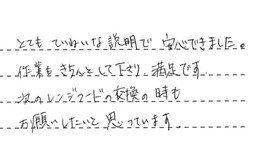 とても ていねいな説明で 安心できました。
作業も きちんとして下さり、満足です
次のレンジフードの交換の時も
お願いしたいと 思っています